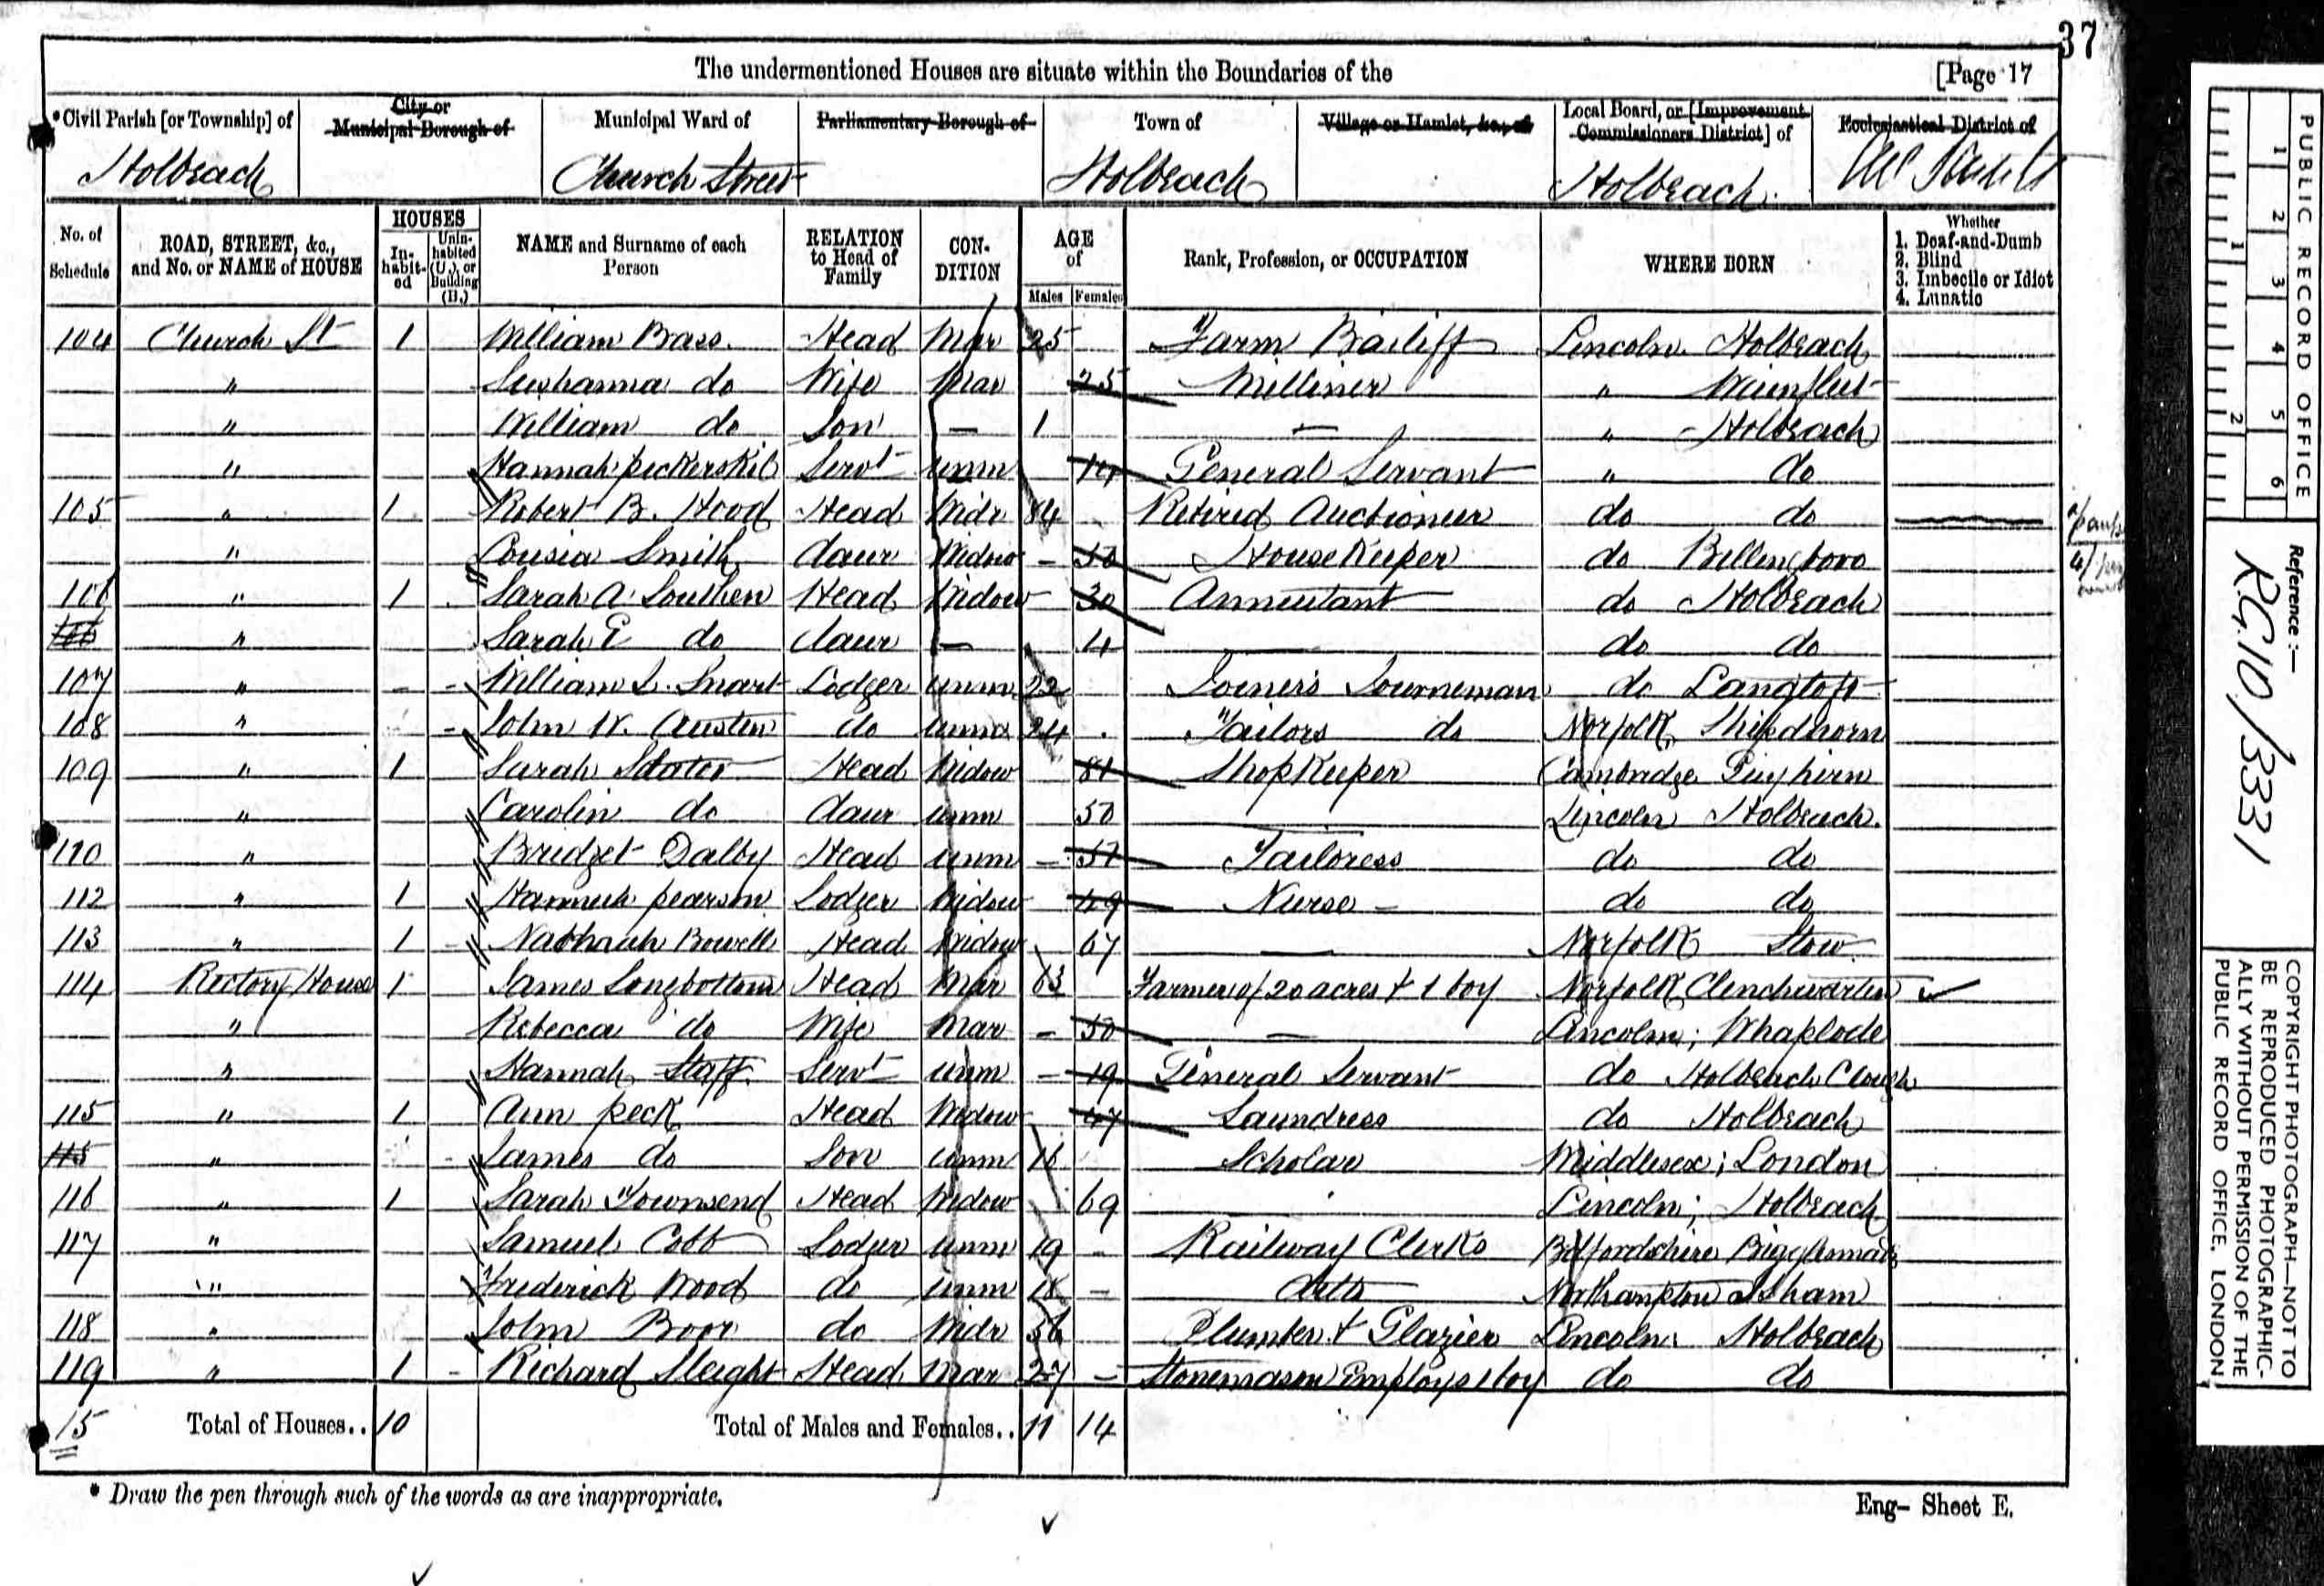 37
The undermentioned Houses are situate within the Boundaries of the [Page 17
*Civil Parish [or Township] of City or Municipal Borough of Municipal Ward of Parliamentary Borough of Town of Village or Hamlet, &c., of Local Board, or [Improvement Commissioners District] of Ecclesiastical District of
Holbeach Church Street Holbeach Holbeach
No. of Schedule ROAD, STREET, &c., and No. or NAME of HOUSE HOUSES Inhabited Uninhabited (U.), or Building (B.) NAME and Surname of each Person RELATION to Head of Family CONDITION AGE of Males Females Rank, Profession, or OCCUPATION WHERE BORN Whether 1. Deaf-and-Dumb 2. Blind 3. Imbecile or Idiot 4. Lunatic
104 Church St 1 William Brass Head Mar 25 Farm Bailiff Lincoln Holbeach
" Sushanna do Wife Mar 25 Milliner " Wainfleet
" William do Son — 1 — " Holbeach
" Hannah Servt unm 14 General Servant " do
105 " 1 Robert B. Hood Head Widr 84 Retired Auctioneer do do
" Lousia Smith daur Widow - 50 HouseKeeper do Billingboro
106 " 1 Sarah A Southen Head Widow 30 Annuitant do Holbeach
106 " Sarah E do daur — 4 do do
107 " - - William S. Smart Lodger unm 22 Joiners Journeman do Langtoft
108 " - John W. Austin do unm 24 Tailors do Norfolk
109 " 1 Sarah Head Widow 81 ShopKeeper Cambridge Guyhirn
" Carolin do daur unm 50 Lincoln Holbeach
110 " Bridget Dalby Head unm - 57 Tailoress do do
112 " 1 Hannah pearson Lodger Widow 49 Nurse - do do
113 " 1 - Bowell Head Widow 67 — Norfolk Stow
114 Rectory House 1 James Longbottom Head Mar 63 Farmer of 20 acres & 1 boy Norfolk
" Rebecca do Wife Mar - 50 — Lincoln; Whaplode
" Hannah Staff Servt unm - 19 General Servant do Holbeach Clough
115 " 1 Ann peck Head Widow 47 Laundress do Holbeach
115 " - James do Son unm Scholar Middlesex; London
116 " 1 Sarah Townsend Head Widow 69 Lincoln; Holbeach
117 " Samuel Cobb Lodger unm 19 - Railway Clerks
" Frederick Wood do unm 18 - ditto Northampton Isham
118 " John do Widr 56 Plumber & Glazier Lincoln Holbeach
119 " 1 - Richard Sleight Head Mar 27 - Stonemason Employs 1 boy do do
15 Total of Houses.. 10 Total of Males and Females.. 11 14
* Draw the pen through such of the words as are inappropriate.
Eng- Sheet E.
PUBLIC RECORD OFFICE
1 2 3 4 5 6
1 2
Reference:—
R.G.10/3331
COPYRIGHT PHOTOGRAPH—NOT TO
BE REPRODUCED PHOTOGRAPHIC-
ALLY WITHOUT PERMISSION OF THE
PUBLIC RECORD OFFICE, LONDON